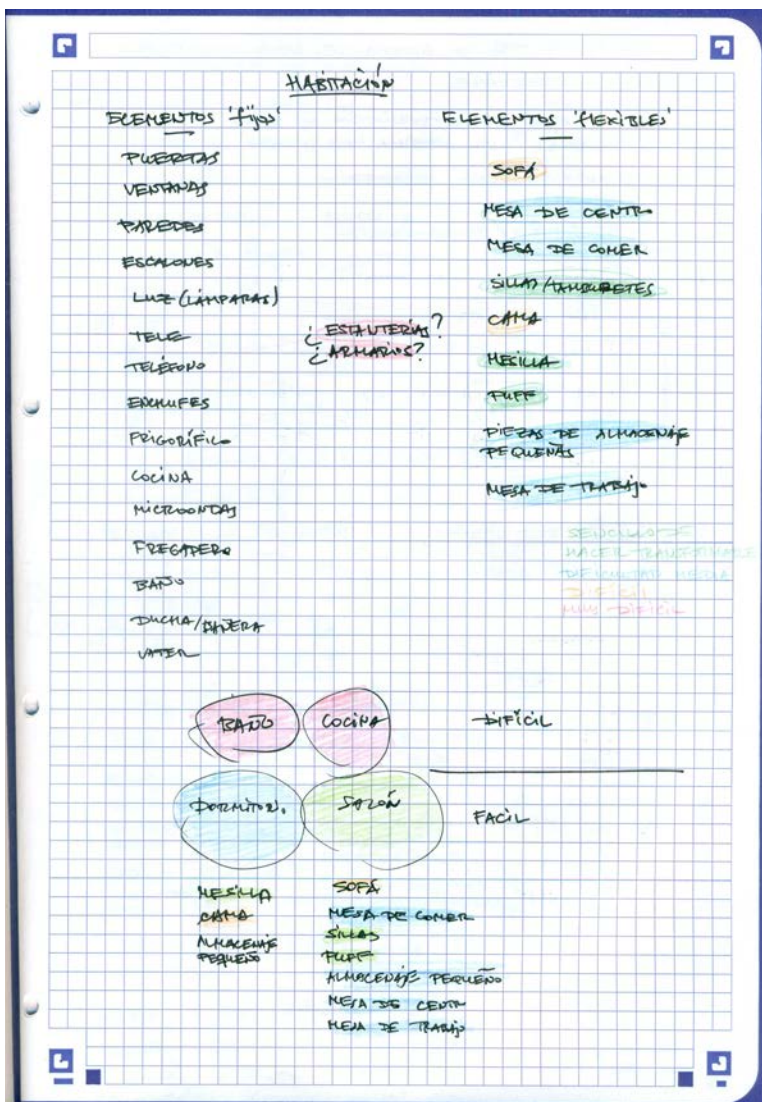 HABITACIÓN
ELEMENTOS 'fijos'
PUERTAS
VENTANAS
PAREDES
ESCALONES
LUZ (LÁMPARAS)
TELE
TELÉFONO
ENCHUFES
FRIGORÍFICO
COCINA
MICROONDAS
FREGADERO
BAÑO
DUCHA/BAÑERA
VATER
¿ESTANTERÍAS?
¿ARMARIOS?
ELEMENTOS 'FLEXIBLES'
SOFÁ
MESA DE CENTRO
MESA DE COMER
SILLAS/TAMBURETES
CAMA
MESILLA
PUFF
PIEZAS DE ALMACENAJE
PEQUEÑAS
MESA DE TRABAJO
SENCILLO DE
HACER TRANSFORMABLE
DIFICULTAD MEDIA
DIFÍCIL
MUY DIFÍCIL
BAÑO
COCINA
DIFÍCIL
DORMITOR.
SALÓN
FACIL
MESILLA
CAMA
ALMACENAJE
PEQUEÑO
SOFÁ
MESA DE COMER
SILLAS
PUFF
ALMACENAJE PEQUEÑO
MESA DE CENTR
MESA DE TRABAJO